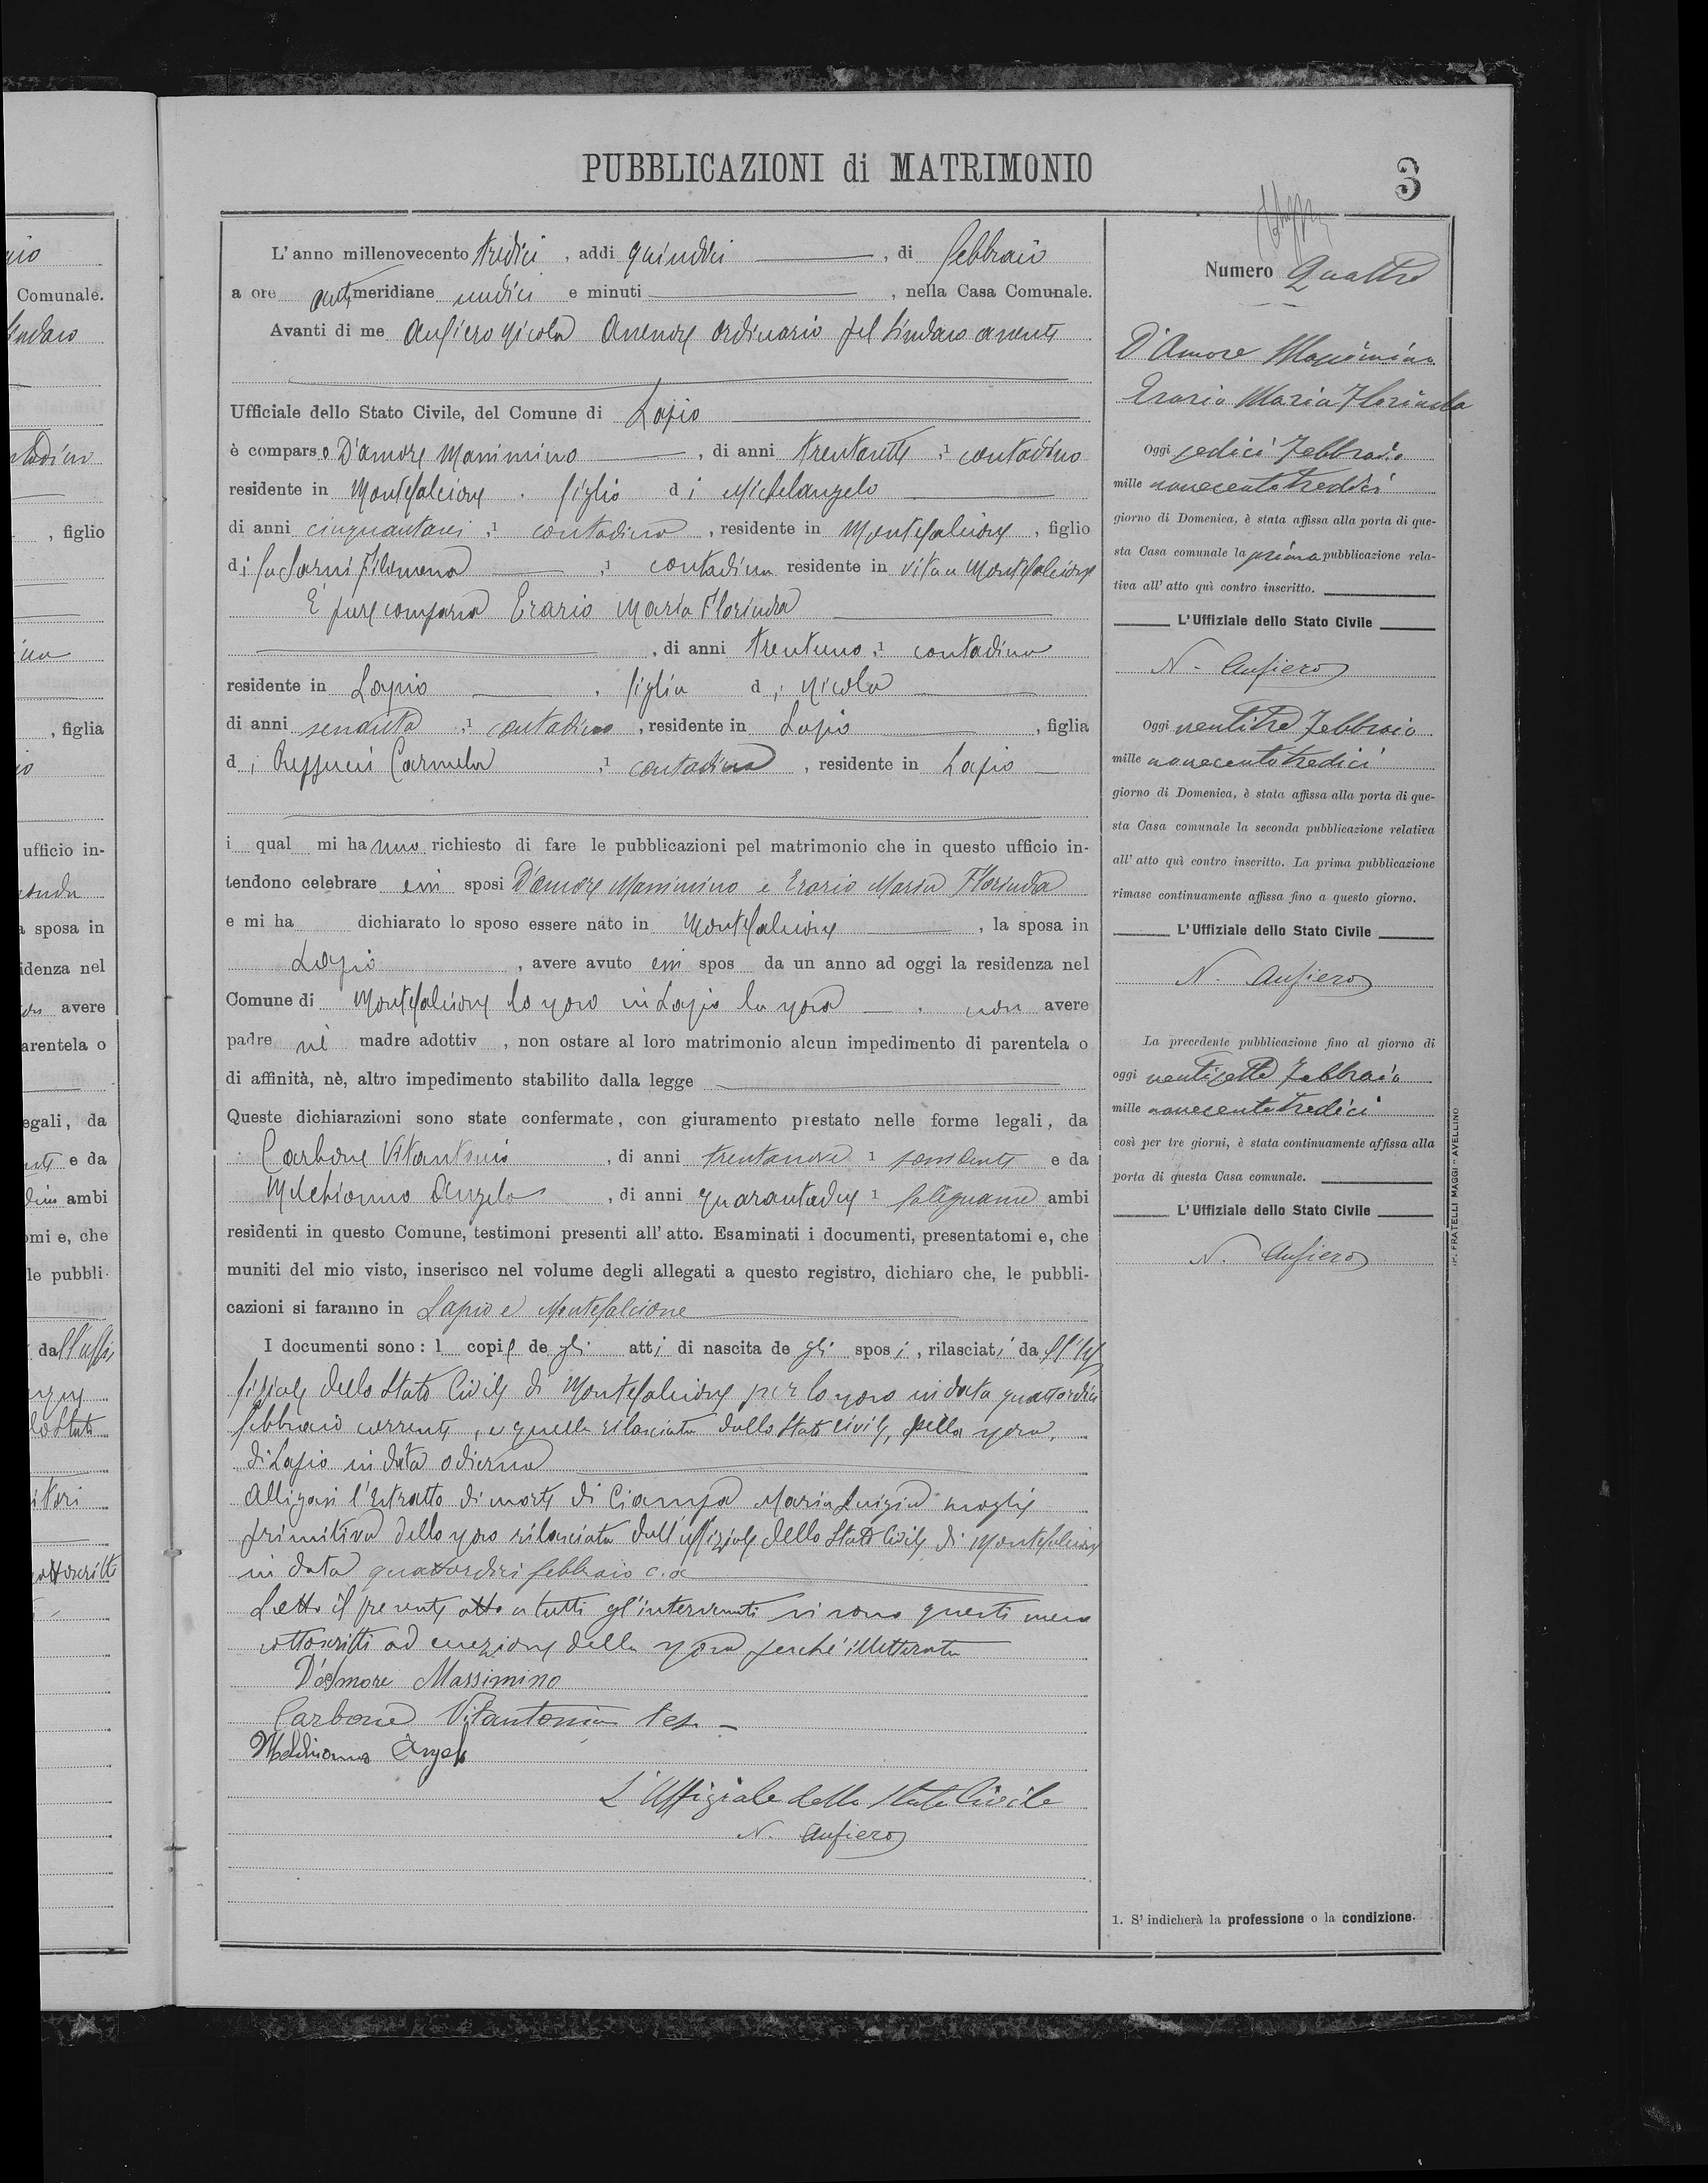 PUBBLICAZIONI di MATRIMONIO
3
L'anno millenovecento tredici, addi quindici, di febbraio
a ore antimeridiane undici e minuti, nella Casa Comunale.
Avanti di me Aufiero Nicola Assessore ordinario pel Sindaco assente
Ufficiale dello Stato Civile, del Comune di Lapio
è comparso D'Amore Massimino, di anni trentasette ,1 contadino
residente in Montefalcione, figlio di Michelangelo
di anni cinquantasei ,1 contadino, residente in Montefalcione, figlio
di fu Sarni Filomena ,1 contadina residente in vita a Montefalcione
È pure comparsa Erario Maria Florinda
, di anni trentuno ,1 contadina
residente in Lapio, figlia di Nicola
di anni sessanta ,1 contadino, residente in Lapio, figlia
di Carmela ,1 contadina, residente in Lapio
i qual mi hanno richiesto di fare le pubblicazioni pel matrimonio che in questo ufficio in-
tendono celebrare essi sposi D'Amore Massimino e Erario Maria Florinda
e mi ha dichiarato lo sposo essere nato in Montefalcione, la sposa in
Lapio, avere avuto essi spos da un anno ad oggi la residenza nel
Comune di Montefalcione lo sposo in Lapio la sposa, non avere
padre nè madre adottiv , non ostare al loro matrimonio alcun impedimento di parentela o
di affinità, nè, altro impedimento stabilito dalla legge
Queste dichiarazioni sono state confermate, con giuramento prestato nelle forme legali, da
Carbone Vitantonio, di anni trentanove 1 e da
Melchionno Angelo, di anni quarantadue 1 falegname ambi
residenti in questo Comune, testimoni presenti all'atto. Esaminati i documenti, presentatomi e, che
muniti del mio visto, inserisco nel volume degli allegati a questo registro, dichiaro che, le pubbli-
cazioni si faranno in Lapio e Montefalcione
I documenti sono: 1 copie degli atti di nascita degli sposi, rilasciati dall'Uf
fiziale dello Stato Civile di Montefalcione per lo sposo in data quattordici
febbraio corrente, e quella rilasciata dallo Stato Civile, della sposa,
di Lapio in data odierna
Alligasi l'Estratto di morte di Ciampa Maria Luigia moglie
primitiva dello sposo rilasciata dall'uffiziale dello Stato Civile di Montefalcione
in data quattordici febbraio c.a
Letto il presente atto a tutti gl'intervenuti si sono questi meco
sottoscritti ad eccezione della sposa perchè illetterata
D'Amore Massimino
Carbone Vitantonio tes.
Melchionno Angelo
L'Uffiziale dello Stato Civile
N. Aufiero
Numero Quattro
D'Amore Massimino
Erario Maria Florinda
Oggi sedici Febbraio
mille novecentotredici
giorno di Domenica, è stata affissa alla porta di que-
sta Casa comunale la prima pubblicazione rela-
tiva all'atto quì contro inscritto.
L'Uffiziale dello Stato Civile
N. Aufiero
Oggi ventitre Febbraio
mille novecentotredici
giorno di Domenica, è stata affissa alla porta di que-
sta Casa comunale la seconda pubblicazione relativa
all'atto quì contro inscritto. La prima pubblicazione
rimase continuamente affissa fino a questo giorno.
L'Uffiziale dello Stato Civile
N. Aufiero
La precedente pubblicazione fino al giorno di
oggi ventisette Febbraio
mille novecentotredici
così per tre giorni, è stata continuamente affissa alla
porta di questa Casa comunale.
L'Uffiziale dello Stato Civile
N. Aufiero
1. S'indicherà la professione o la condizione.
FRATELLI MAGGI - AVELLINO
Comunale.
, figlio
, figlia
ufficio in-
sposa in
idenza nel
avere
arentela o
egali, da
e da
ambi
omi e, che
le pubbli-